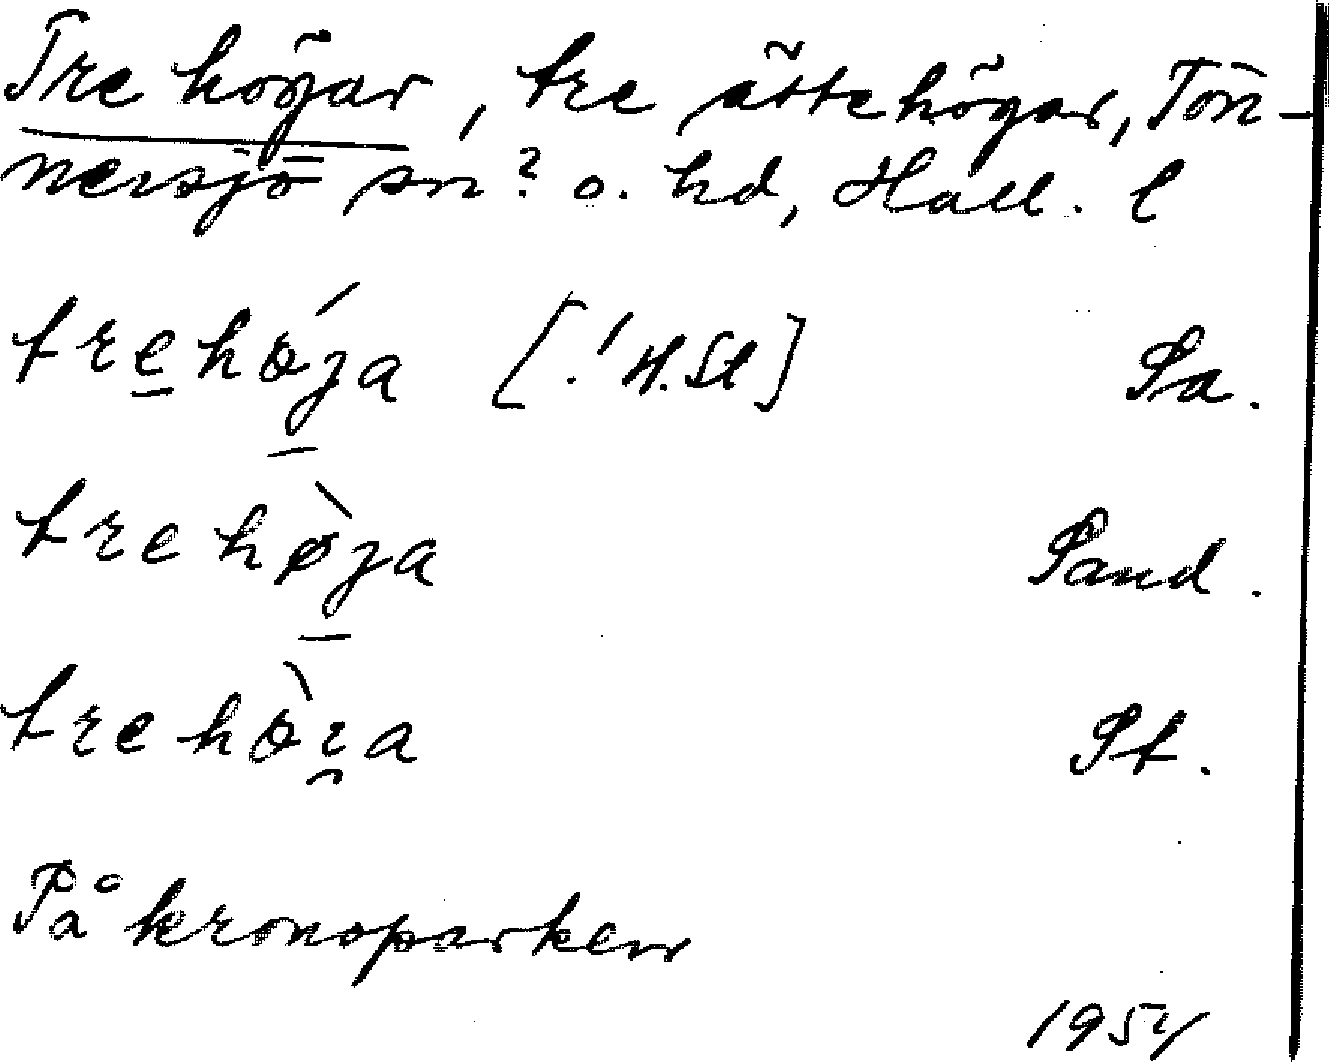 Tre högar, tre ättehögar, Tön-
nersjö sn? o. hd, Hall. l
trehøʒa [! H.St] Pa.
trehøʒa Pand.
trehøra Pt.
På kronoparken
1954